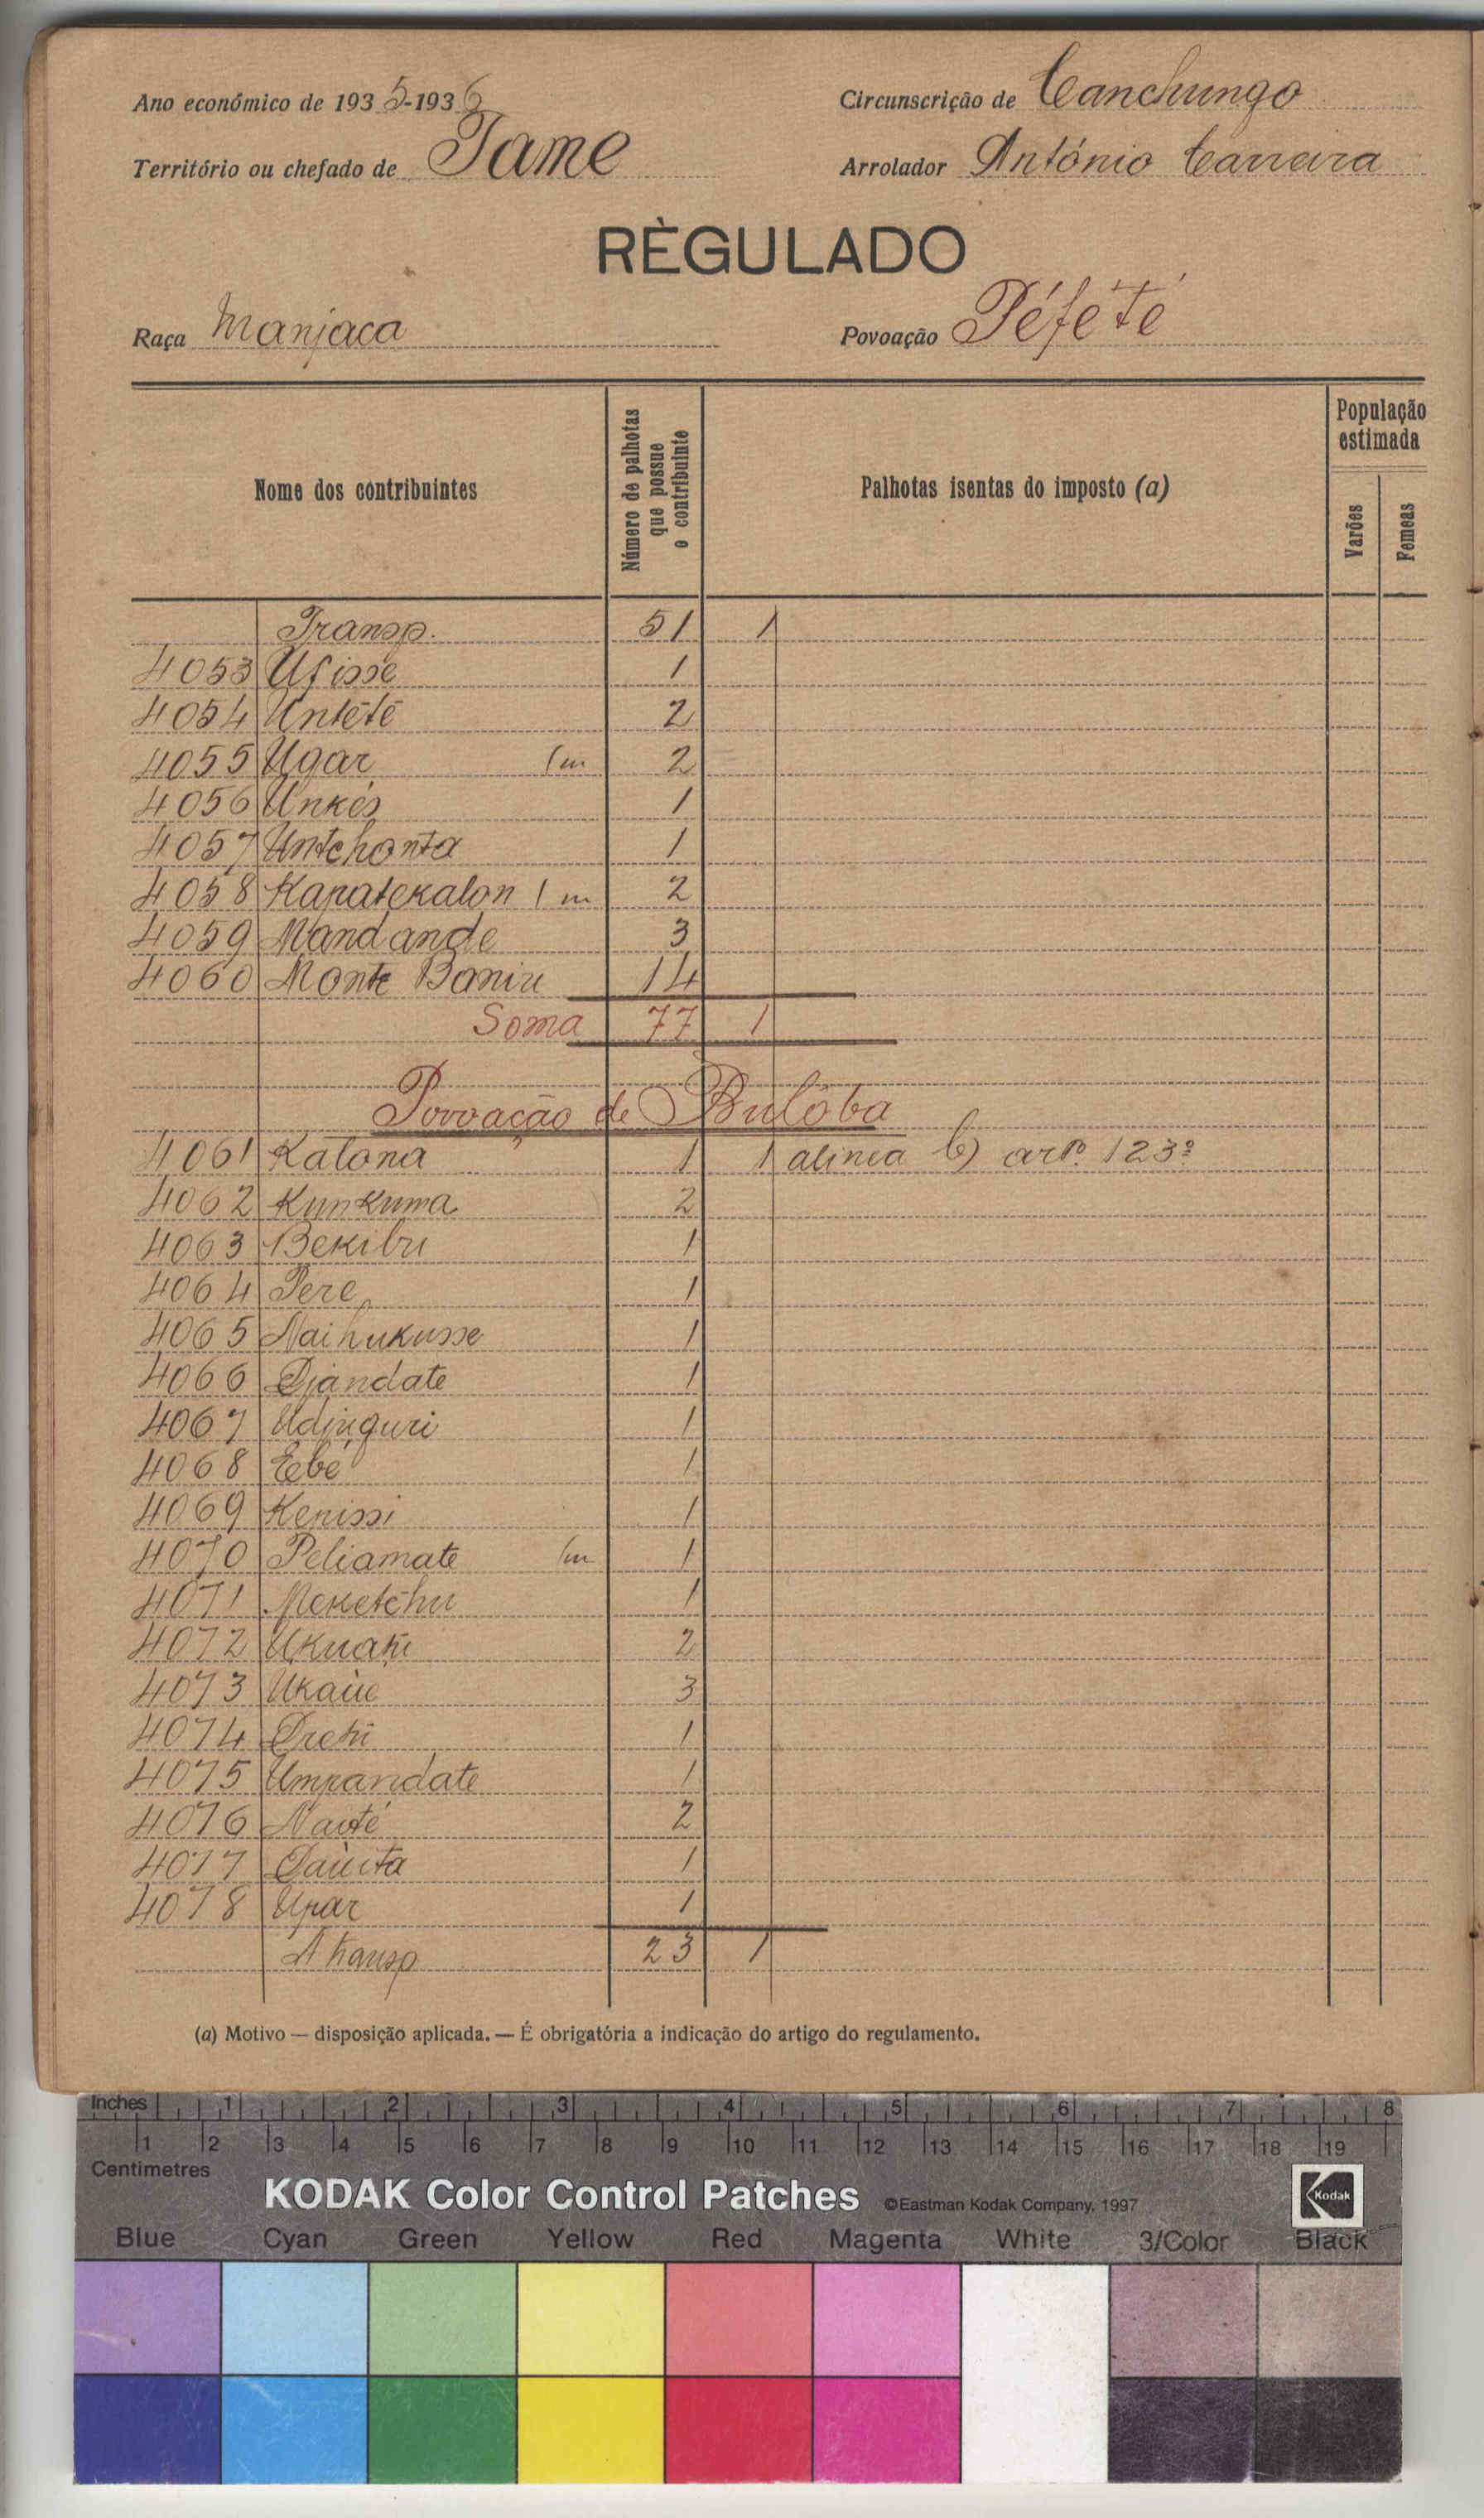 Ano económico de 1935-1936 Circunscrição de Canchungo
Território ou chefado de Tame Arrolador António Carreira
RÈGULADO
Raça Manjaca Povoação Péfété
Nome dos contribuintes
Número de palhotas que possue o contribuinte
Palhotas isentas do imposto (a)
População estimada
Varões
Femeas
Transp. 51 1
4053 Ufisse 1
4054 Untété 2
4055 Ugar 1m 2
4056 Unkés 1
4057 Untchonta 1
4058 Kapatekalon 1 m 2
4059 Mandande 3
4060 Monte Baniu 14
Soma 77 1
Povoação de Bulóba
4061 Katona 1 1 alinea b) artº. 123º
4062 Kunkuma 2
4063 Bekibu 1
4064 Pere 1
4065 Naihukusse 1
4066 Djandate 1
4067 Udinguri 1
4068 Bebé 1
4069 Kenissi 1
4070 Peliamate 1m 1
4071 Meketchu 1
4072 Ukuati 2
4073 Ukaúe 3
4074 1
4075 Umpandate 1
4076 Naoté 2
4077 1
4078 Upar 1
A transp 23 1
(a) Motivo — disposição aplicada. — É obrigatória a indicação do artigo do regulamento.
Inches 1 2 3 4 5 6 7 8
1 2 3 4 5 6 7 8 9 10 11 12 13 14 15 16 17 18 19
Centimetres
KODAK Color Control Patches ©Eastman Kodak Company, 1997 Kodak
Blue Cyan Green Yellow Red Magenta White 3/Color Black